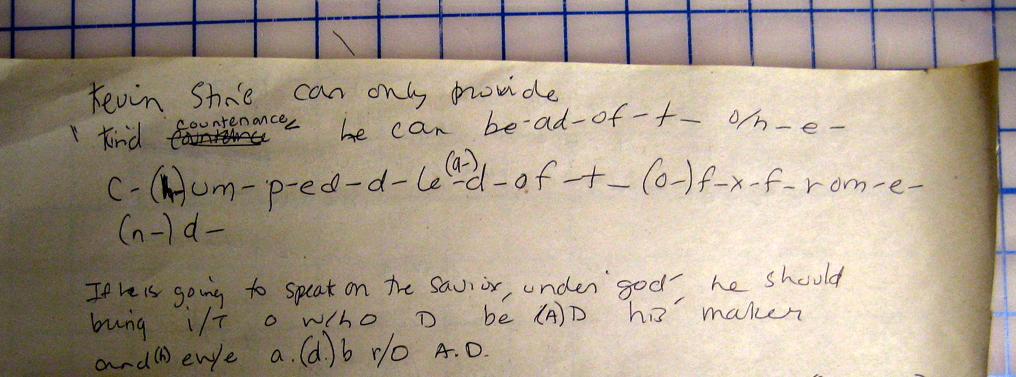 Kevin can only provide
Kind countenance he can be-ad-of-t- o/n-e-
c-(h)um-p-ed-d-le(a-)-d-of-t-(o-)f-x-f-rom-e-
(n-)d-
If he is going to speak on the savior, under 'god' he should
bring i/T o w/h o D be (A)D his' maker
and (h) en/e a.(d.)b r/o A.D.